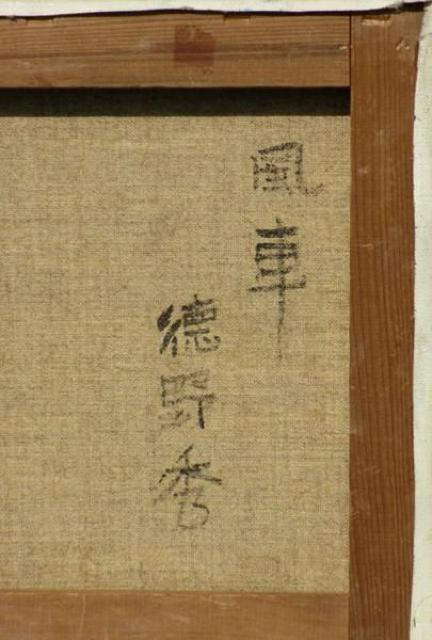 風車
德野秀